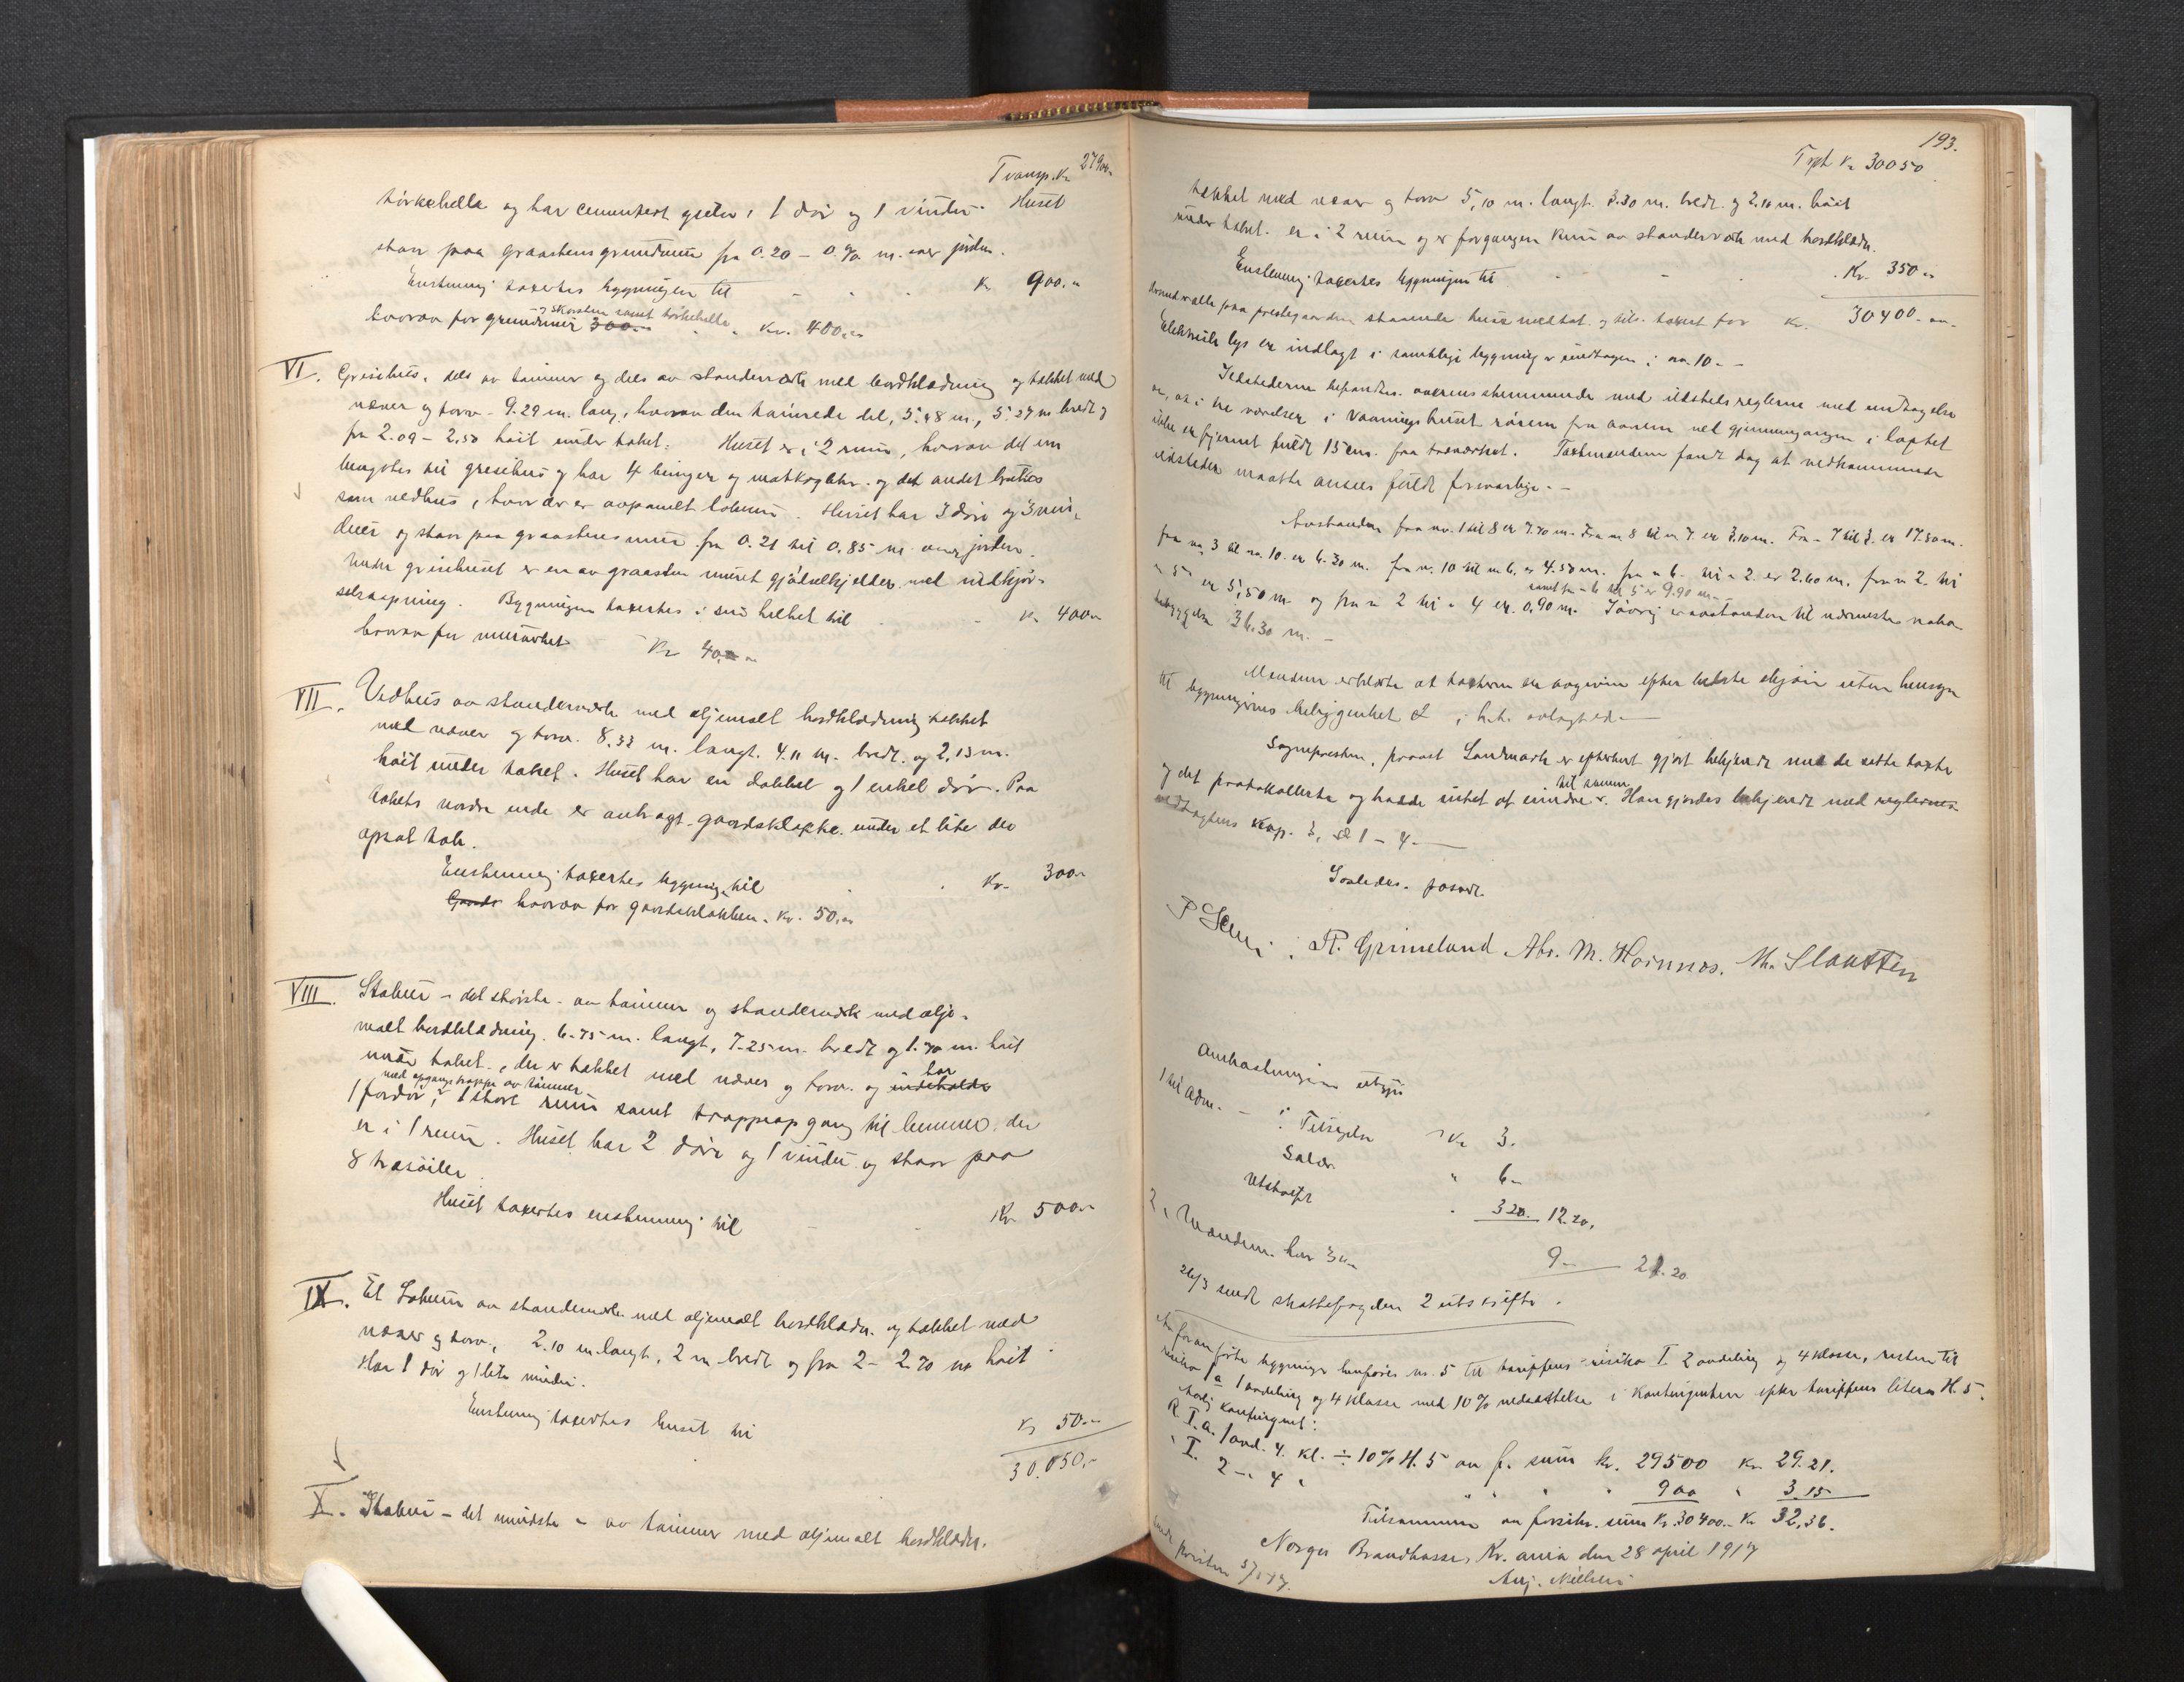 Transp. Kr 27900.-
tørkehelle og har cementert gulv, 1 dør og 1 vindu. Huset
staar paa graastensgrundmur fra 0.20 - 0.90 m. over jorden.
Enstemmig taxertes bygningen til - - - Kr 900.-
hvorav for grundmur og skorsten samt tørkehelle 300.- Kr. 400.-
VI. Grisehus, dels av tømmer og dels av standerverk med bordklædning og tækket med
næver og torv - 9.29 m. lang, hvorav den tømrede del, 5.48 m, 5.27 m bredt og
fra 2.09 - 2.50 høit under taket. Huset er i 2 rum, hvorav det ene
benyttes til grisehus og har 4 binger og matkogekar og det andet brukes
som vedhus, hvor der er avpanelt lokum. Huset har 3 døre og 3 vin-
duer og staar paa graastensmur fra 0.21 til 0.85 m. over jorden.
Under grisehuset er en av graasten muret gjødselkjelder med indkjør-
selsaapning. Bygningen taxertes i sin helhet til - - Kr 400.-
hvorav for murverket Kr 40.-
VII. Vedhus av standerverk med oljemalt bordklædning tækket
med næver og torv. 8.33 m. langt. 4.11 m. bredt og 2,13 m.
høit under taket. Huset har en dobbel og 1 enkel dør. Paa
takets nordre ende er anbragt gaardsklokke under et lite der
opsat tak.
Enstemmig taxertes bygning. til - - Kr. 300.-
Gaards hvorav for gaardsklokken. Kr. 50.-
VIII. Stabur - det største - av tømmer og standerverk med olje-
malt bordklædning. 6.75 m. langt, 7.25 m. bredt og 1.70 m. høit
under taket, der er tækket med næver og torv. og indeholder har
1 fordør, med opgangstrappe av tømmer 1 stort rum samt trappeopgang til lemmen, der
er i 1 rum. Huset har 2 døre og 1 vindu og staar paa
8 træsøiler.
Huset taxertes enstemmig til - - Kr 500.-
IX. Et Lokum av standerverk med oljemalt bordklædn. og tækket med
næver og torv, 2.10 m langt, 2 m bredt og fra 2 - 2.70 m høit.
Har 1 dør og 1 lite vindu.
Enstemmig taxertes huset til Kr 50.-
30.050.-
X. Stabur - det mindste - av tømmer med oljemalt bordklædn.
193.
Trpt Kr 30050
tækket med næver og torv 5,10 m. langt. 3.30 m. bredt og 2.10 m. høit
under taket. er i 2 rum og er forgangen kun av standerverk med bordklædn.
Enstemmig taxertes bygningen til - - - Kr. 350.-
paa prestegaarden staaende huse medtat og tils. taxert for Kr. 30400.-
Elektrisk lys er indlagt i samtlige bygning. undtagen i no. 10. -
Ildstederne befandtes overensstemmende med ildstedsreglerne med undtagelse
av, at i tre værelser i Vaaningshuset rørene fra ovnene ved gjennemgangen i loftet
ikke er fjernet fuldt 15 cm. fra træverket. Taxtmændene fandt dog at vedkommende
ildsteder maatte ansees fuldt forsvarlige. -
Avstanden fra no. 1 til 8 er 7.70 m. Fra no 8 til no 7. er 3.10 m. Fra - 7 til 3. er 17.50 m.
fra no 3 til no. 10. er 6.30 m. fra no. 10 til no 6. er 4.58 m. fra no 6 - til - 2. er 2.60 m. fra no 2. til
- 5 er 5,50 m. og fra - 2 til - 4 er 0,90 m. samt fra - 6 til 5 er 9.90 m. - Iøvrig er avstanden til nærmeste nabo-
bebyggelse 36.30 m. -
Mændene erklærte at taxterne er avgivne efter bedste skjøn uten hensyn
til bygningernes beliggenhet i h.h. avlaghed. -
Sognepresten, provst Landmark er efterhvert gjort bekjendt med de satte taxter
og det protokollerte og hadde intet at erindre til samme. Han gjordes bekjendt med reglernes
vedtægtens kap. 3, § 1 - 4. -
Saaledes passert.
P. Grimelund Abr. M. Hornnes. M. Slaatten
Omkostningerne utgjør
1 til adm. - : Tilsigelse Kr 3.
Salær " 6.-
Utskrift " 3.20. 12.20.
2, Mændene hver 3.- 9.- 21.20
26/3 sendt skattefogden 2 utskrifter.
Foranførte bygninger henføres no. 5 til tariffens risiko I. 2 avdeling og 4 klasse, resten til
risiko I a 1 avdeling og 4 klasse med 10% nedsættelse i kontingenten efter tariffens litera H. 5.
Aarlig kontingent:
R. I. a. 1 avd. 4. kl. ÷ 10% H. 5 av f. sum kr. 29500 Kr. 29.21.
" I. 2 -" 4 " " " " " 900 " 3.15
Tilsammen av forsikr. sum Kr. 30400.- Kr 32,36.
Norges Brandkasse, Kr. ania den 28 april 1917